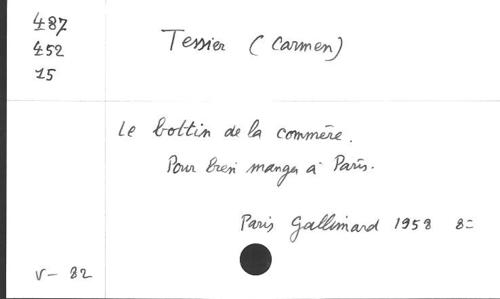 487
452
15
Tessier (Carmen)
Le bottin de la commère.
Pour bien manger à Paris.
Paris Gallimard 1958 8=
V- 82